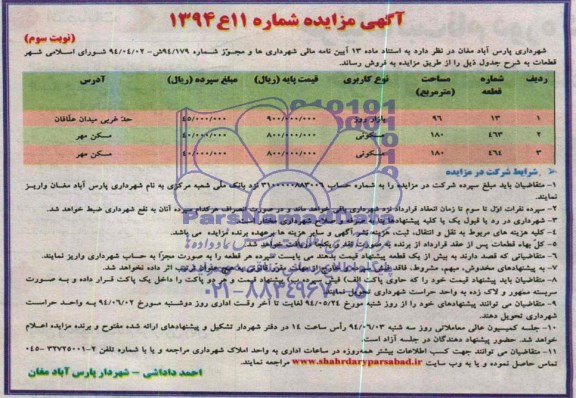 آگهی مزایده شماره ۱۱ع۱۳۹۴
(نوبت سوم)
شهرداری پارس آباد مغان در نظر دارد به استناد ماده ۱۳ آیین نامه مالی شهرداری ها و مجوز شماره ۹۴/۱۷۹ش- ۹۴/۰۴/۰۲ شورای اسلامی شهر
قطعات به شرح جدول ذیل را از طریق مزایده به فروش رساند.
ردیف شماره قطعه مساحت (مترمربع) نوع کاربری قیمت پایه (ریال) مبلغ سپرده (ریال) آدرس
۱ ۱۳ ۹۶ بازار روز ۹۰۰/۰۰۰/۰۰۰ ۴۵/۰۰۰/۰۰۰ حد غربی میدان علافان
۲ ۴۶۳ ۱۸۰ مسکونی ۸۰۰/۰۰۰/۰۰۰ ۴۰/۰۰۰/۰۰۰ مسکن مهر
۳ ۴۶۴ ۱۸۰ مسکونی ۸۰۰/۰۰۰/۰۰۰ ۴۰/۰۰۰/۰۰۰ مسکن مهر
شرایط شرکت در مزایده
۱- متقاضیان باید مبلغ سپرده شرکت در مزایده را به شماره حساب ۳۱۰۰۰۰۰۸۸۳۰۰۹ نزد بانک ملی شعبه مرکزی به نام شهرداری پارس آباد مغان واریز
نمایند.
۲- سپرده نفرات اول تا سوم تا زمان انعقاد قرارداد نزد شهرداری باقی خواهد ماند و در صورت انصراف هرکدام سپرده آنان به نفع شهرداری ضبط خواهد شد.
۳- شهرداری در رد یا قبول یک یا کلیه پیشنهادها بنا به صرفه و صلاح شهرداری مختار است.
۴- کلیه هزینه های مربوط به نقل و انتقال، ثبت، هزینه نشر آگهی و سایر هزینه ها برعهده برنده مزایده می باشد.
۵- کل بهاء قطعات پس از عقد قرارداد از برنده به صورت نقد و یکجا دریافت خواهد شد.
۶- متقاضیانی که قصد دارند به بیش از یک قطعه پیشنهاد قیمت بدهند می بایست سپرده هر قطعه را به صورت مجزا به حساب شهرداری واریز نمایند.
۷- به پیشنهادهای مخدوش، مبهم، مشروط، فاقد سپرده و خارج از مهلت مقرر قانونی به هیچ عنوان ترتیب اثر داده نخواهد شد.
۸- متقاضیان باید پیشنهاد قیمت خود را که حاوی پاکت الف) پیشنهاد قیمت و هر دو پاکت را داخل یک پاکت قرار داده و به صورت
سربسته ممهور و لاک زده به واحد حراست شهرداری تحویل نمایند.
۹- متقاضیان می توانند پیشنهادهای خود را از روز شنبه مورخ ۹۴/۰۵/۲۴ لغایت تا آخر وقت اداری روز دوشنبه مورخ ۹۴/۰۶/۰۲ به واحد حراست
شهرداری تحویل دهند.
۱۰- جلسه کمیسیون عالی معاملاتی روز سه شنبه ۹۴/۰۶/۰۳ رأس ساعت ۱۴ در دفتر شهردار تشکیل و پیشنهادهای ارائه شده مفتوح و برنده مزایده اعلام
خواهد شد. حضور پیشنهاد دهندگان در جلسه آزاد است.
۱۱- متقاضیان می توانند جهت کسب اطلاعات بیشتر همه‌روزه در ساعات اداری به واحد املاک شهرداری مراجعه و یا با شماره تلفن ۲-۳۲۷۲۵۰۰۱ -۰۴۵
تماس حاصل نموده و یا به وب سایت www.shahrdaryparsabad.ir مراجعه نمایند.
احمد داداشی - شهردار پارس آباد مغان
ParsNamadData
۰۲۱-۸۸۳۴۹۶۷۰-۵